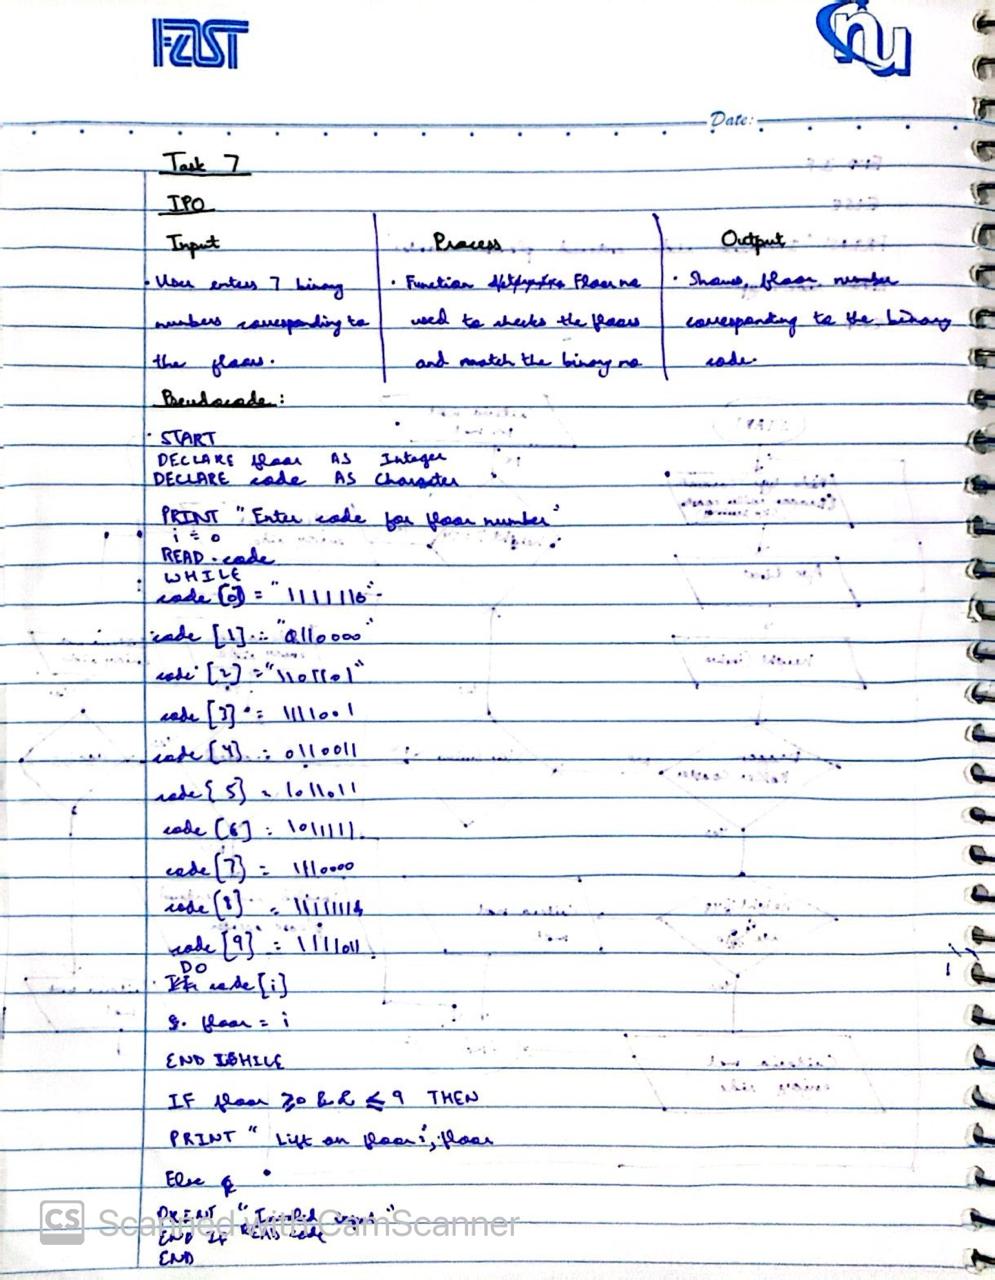 FAST
nu
Date:
Task 7
IPO
Input Process Output
· User enters 7 binary · Function Floor no · Shows floor number
numbers corresponding to used to checks the floors corresponding to the binary
the floors. and match the binary no code.
Pseudocode:
· START
DECLARE floor AS Integer
DECLARE code AS Character
PRINT "Enter code for floor number"
i = 0
READ code
WHILE
code [0] = "1111110"
code [1] = "0110000"
code [2] = "1101101"
code [3] = 1111001
code [4] = 0110011
code [5] = 1011011
code [6] = 1011111
code [7] = 1110000
code [8] = 1111111
code [9] = 1111011
DO
code [i]
floor = i
END WHILE
IF floor ≥0 && ≤ 9 THEN
PRINT " Lift on floor:", floor
Else
PRINT "Invalid "
END IF READ code
END
CS Scanned with CamScanner